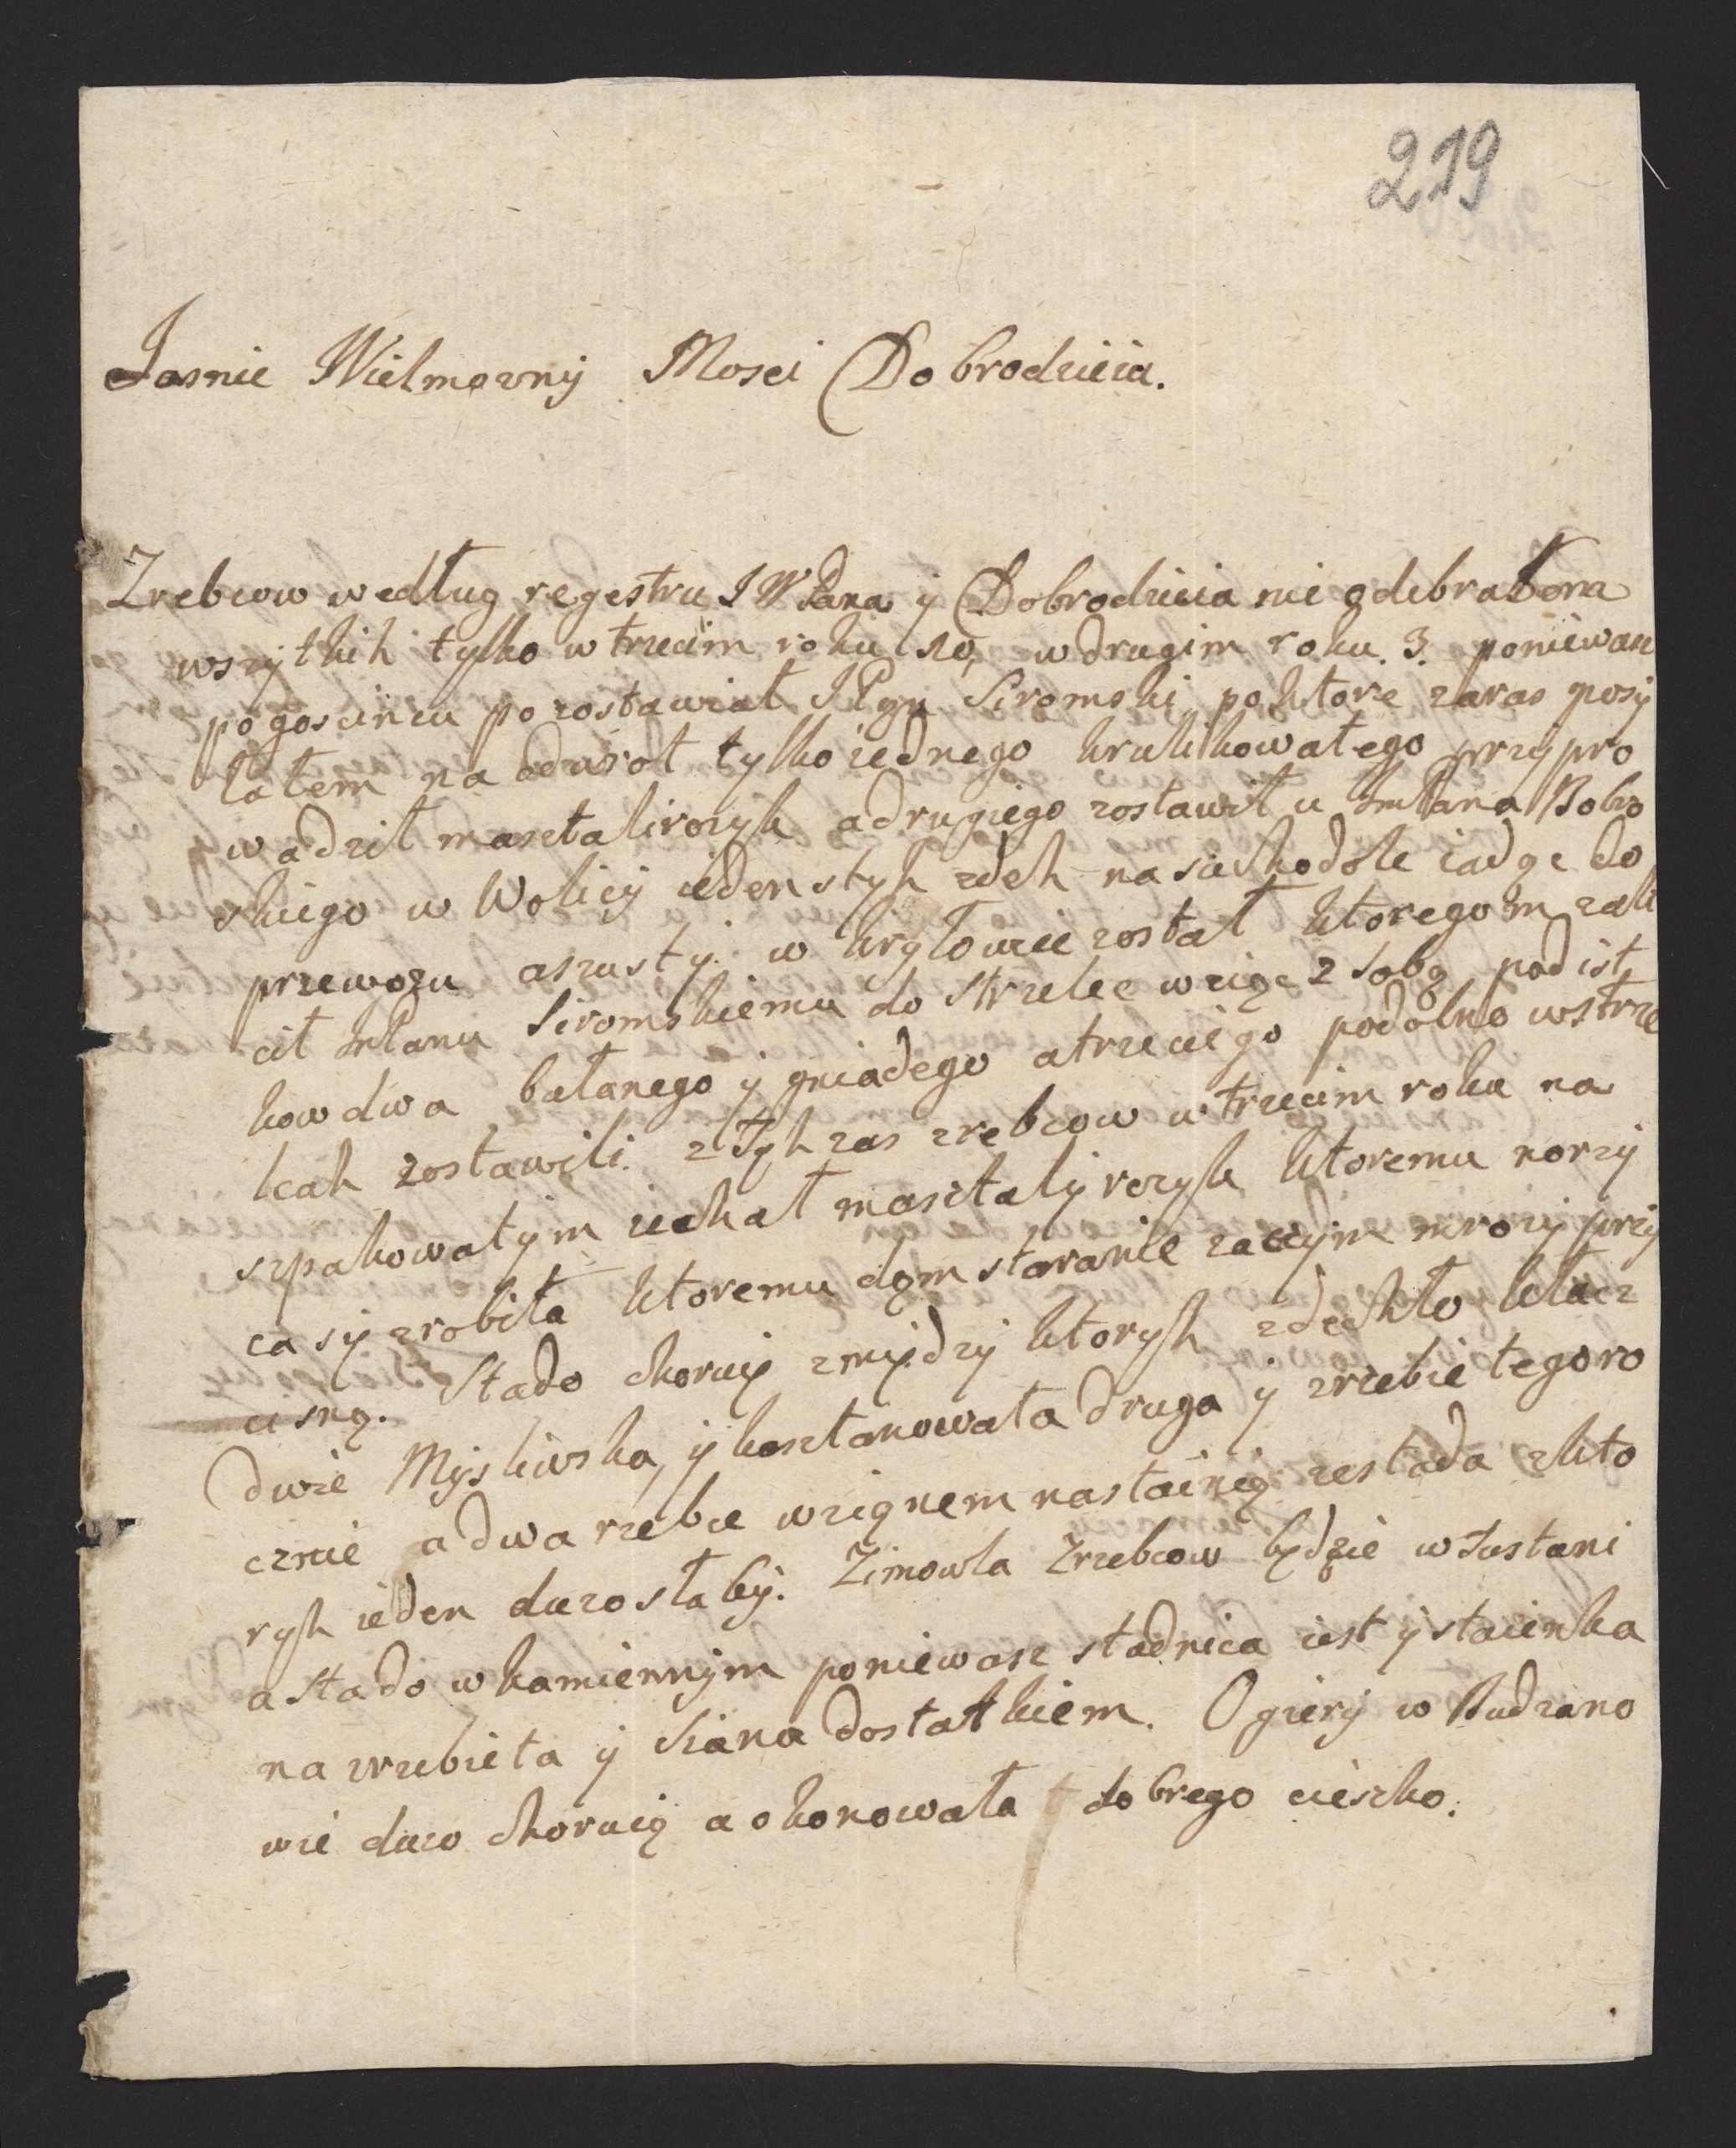 219
Jasnie Wielmozny Mosci Dobrodzieia.
Zrebcow według regestru J W Pana y Dobrodzieia nie odebrałem
wszytkih tylko w trzecim roku 10, w drugim roku 3. poniewasz
po goscincu pozostawiał J Pan Siromski po ktore zaras posy
łałem na odwrot tylko iednego krulikowatego przypro
wadził masztalirczyk a drugiego zostawił u ImPana Bobro
skiego w Wolicy ieden s tyh zdeh na Suchodole iadąc do
przewozu a szusty w Kryłowie został ktoregom zale
cił ImPanu Siromskiemu do Strzelec wziąc z sobą podist
kow dwa bułanego y gniadego a trzeciego podobno w Strze
lcah zostawili. z Tyh zas zrebcow w trzecim roku na
szpakowatym iechał masztalyrczyk ktoremu norzy
ca sy zrobiła ktoremu dam staranie zaczym mrozy przy
cisną. Stado choruie zmiędzy ktoryh zdechło klacz
dwie Mysliwska, y kasztanowata druga y zrzebie tegoro
cznie a dwa rzebce wziąnem na stainią ze stada z kto
ryh ieden duzo słaby. Zimowla Zrzebcow będzie w
a stado w kamiennym poniewasz stadnica iest y stacienka
na zrzebieta y Siana dostatkiem. Ogiery w Rudziano
wie duzo choruią a okonowata dobrego cieszko.